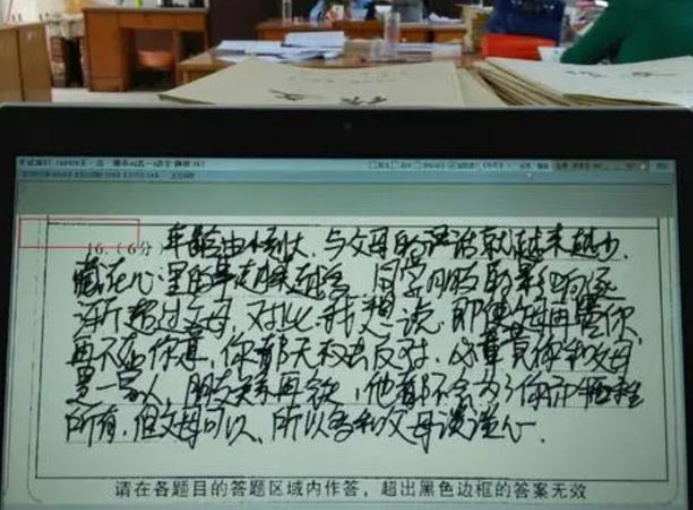 16.(6分) 年龄由小到大,与父母的谈话就越来越少,
藏在心里的是越来越多,同学朋友的影响逐
渐超过父母,对此,我想说,即使父母再骂你,
再不如你意,你都无权去反对,必竟你和父母
是一家人,朋友关系再铁,他都不会为了你而牺牲
所有,但父母可以、所以多和父母谈谈心.
请在各题目的答题区域内作答,超出黑色边框的答案无效